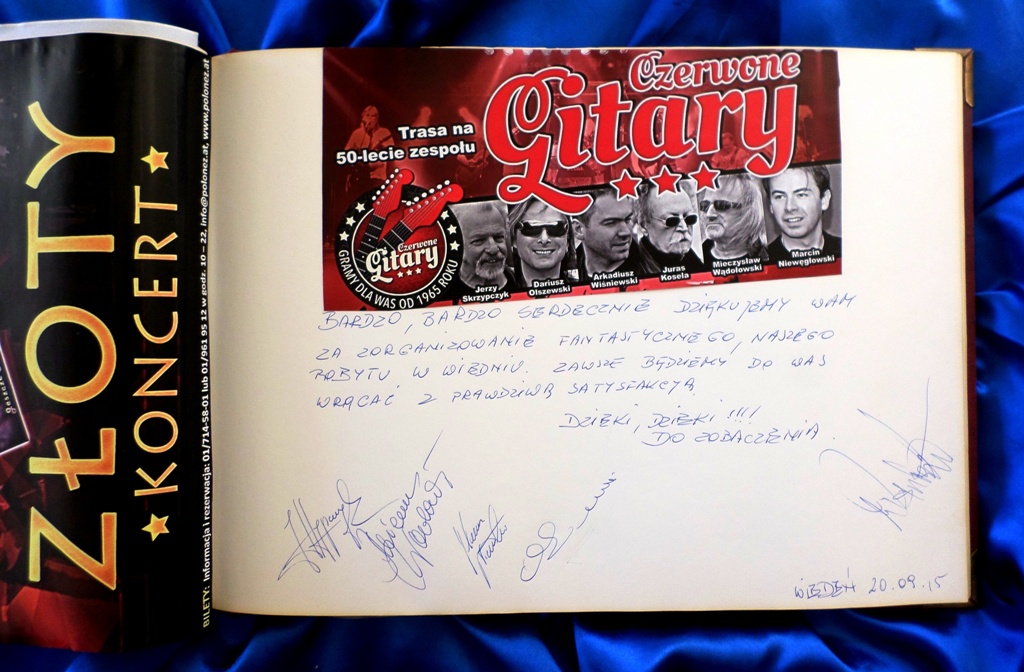 ZŁOTY
KONCERT
BILETY: Informacja i rezerwacja: 01/714-58-01 lub 01/961 95 12 w godz. 10 – 22, info@polonez.at, www.polonez.at
Czerwone
Gitary
Trasa na
50-lecie zespołu
Czerwone
Gitary
GRAMY DLA WAS OD 1965 ROKU
Jerzy
Skrzypczyk
Dariusz
Olszewski
Arkadiusz
Wiśniewski
Juras
Kosela
Mieczysław
Wądołowski
Marcin
Niewęgłowski
BARDZO, BARDZO SERDECZNIE DZIĘKUJEMY WAM
ZA ZORGANIZOWANIE FANTASTYCZNEGO, NASZEGO
POBYTU W WIEDNIU. ZAWSZE BĘDZIEMY DO WAS
WRACAĆ Z PRAWDZIWĄ SATYSFAKCJĄ
DZIĘKI, DZIĘKI !!!!
DO ZOBACZENIA.
WIEDEŃ 20.09.15